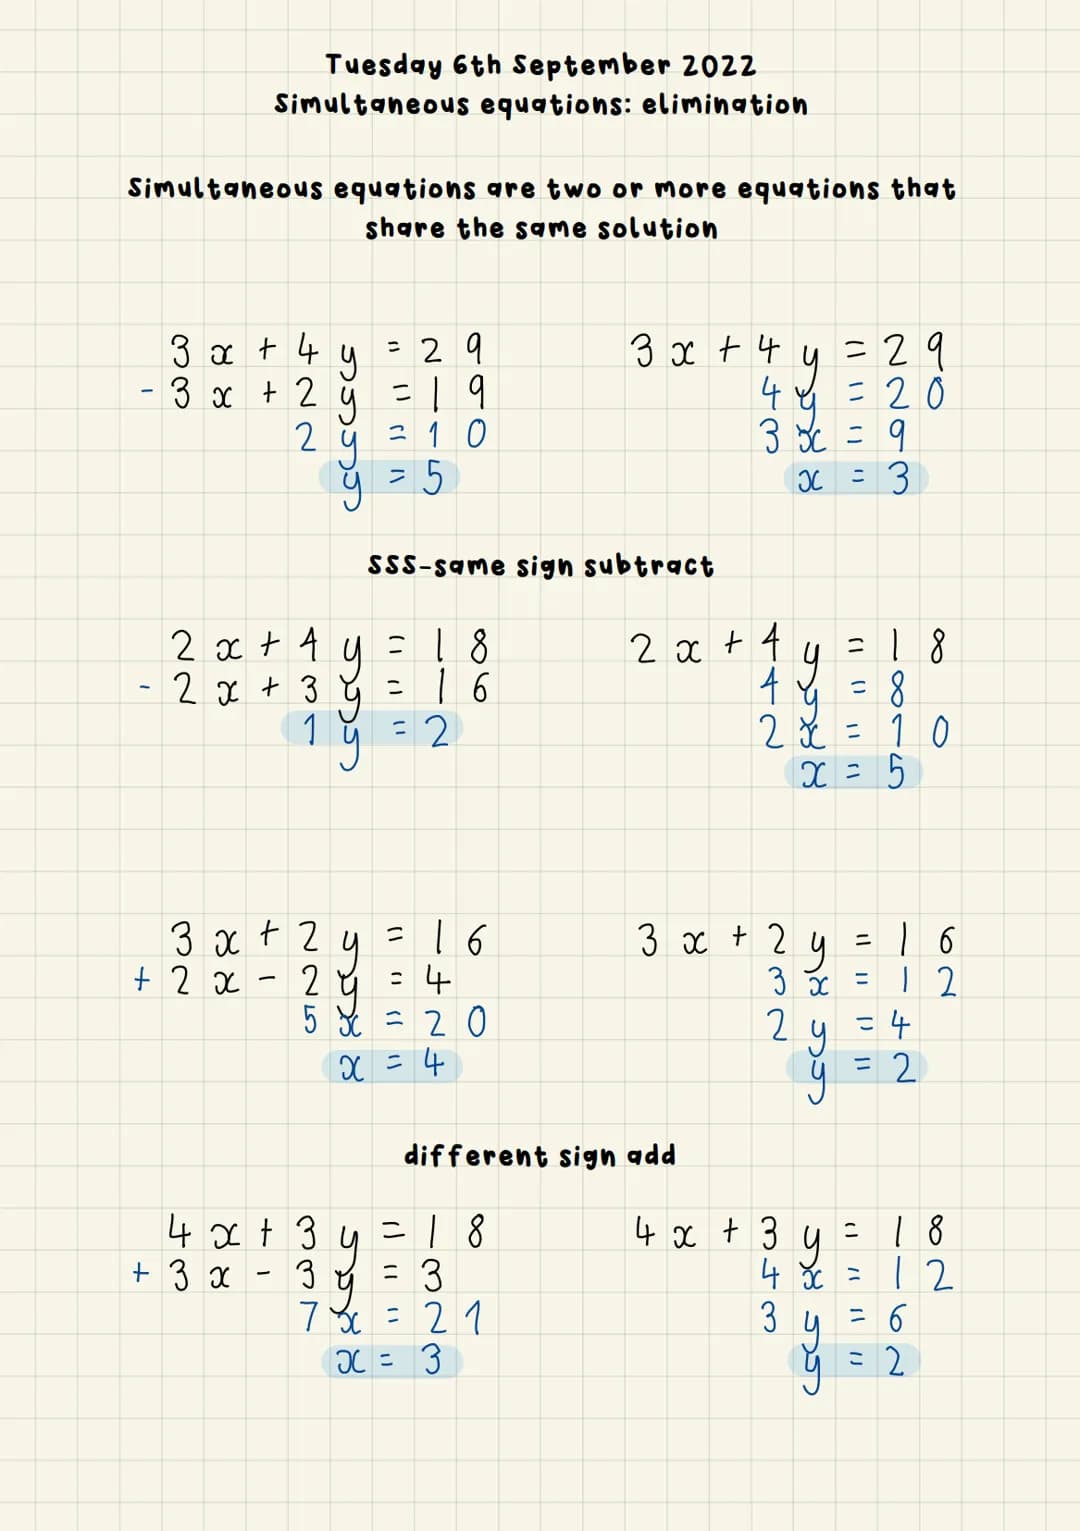 Tuesday 6th September 2022
Simultaneous equations: elimination
Simultaneous equations are two or more equations that
share the same solution
3x + 4y = 29
- 3x + 2y = 19
2y = 10
y = 5
3x + 4y = 29
4y = 20
3x = 9
x = 3
SSS-same sign subtract
2x + 4y = 18
- 2x + 3y = 16
1y = 2
2x + 4y = 18
4y = 8
2x = 10
x = 5
3x + 2y = 16
+ 2x - 2y = 4
5x = 20
x = 4
3x + 2y = 16
3x = 12
2y = 4
y = 2
different sign add
4x + 3y = 18
+ 3x - 3y = 3
7x = 21
x = 3
4x + 3y = 18
4x = 12
3y = 6
y = 2